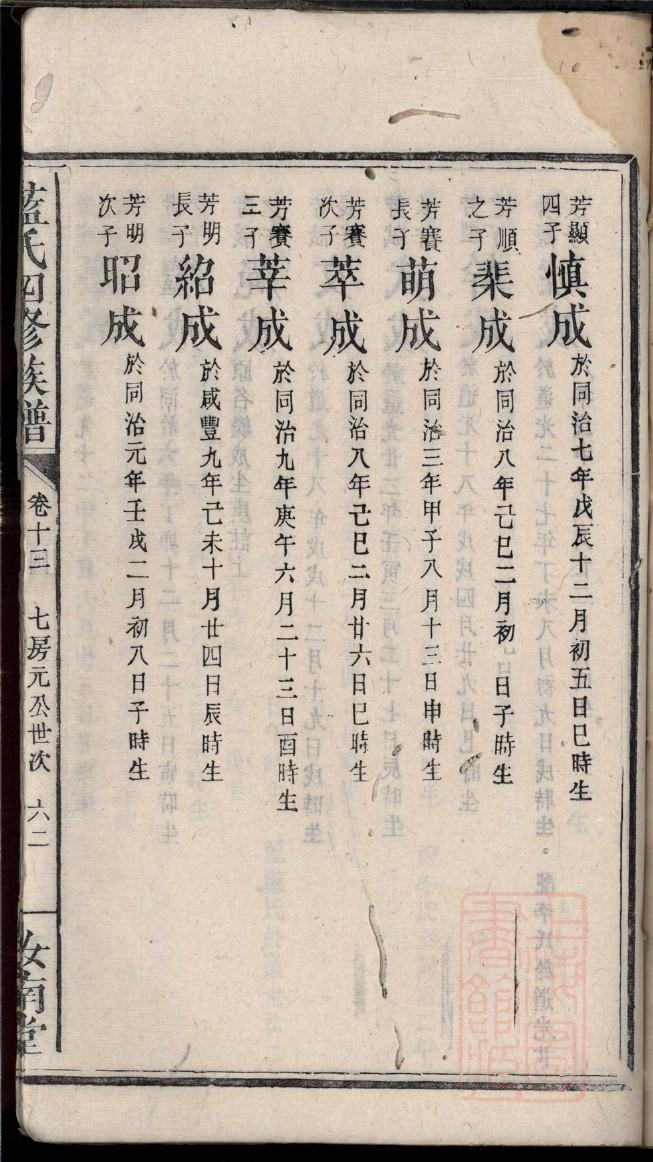 芳顯四子慎成於同治七年戊辰十二月初五日巳時生
芳順之子棐成於同治八年己巳二月初 日子時生
芳賽長子萌成於同治三年甲子八月十三日申時生
芳賽次子萃成於同治八年己巳二月廿六日巳時生
芳賽三子莘成於同治九年庚午六月二十三日酉時生
芳明長子紹成於咸豐九年己未十月廿四日辰時生
芳明次子昭成於同治元年壬戌二月初八日子時生
藍氏四修族譜 卷十三 七房元公世次 六二 汝南堂